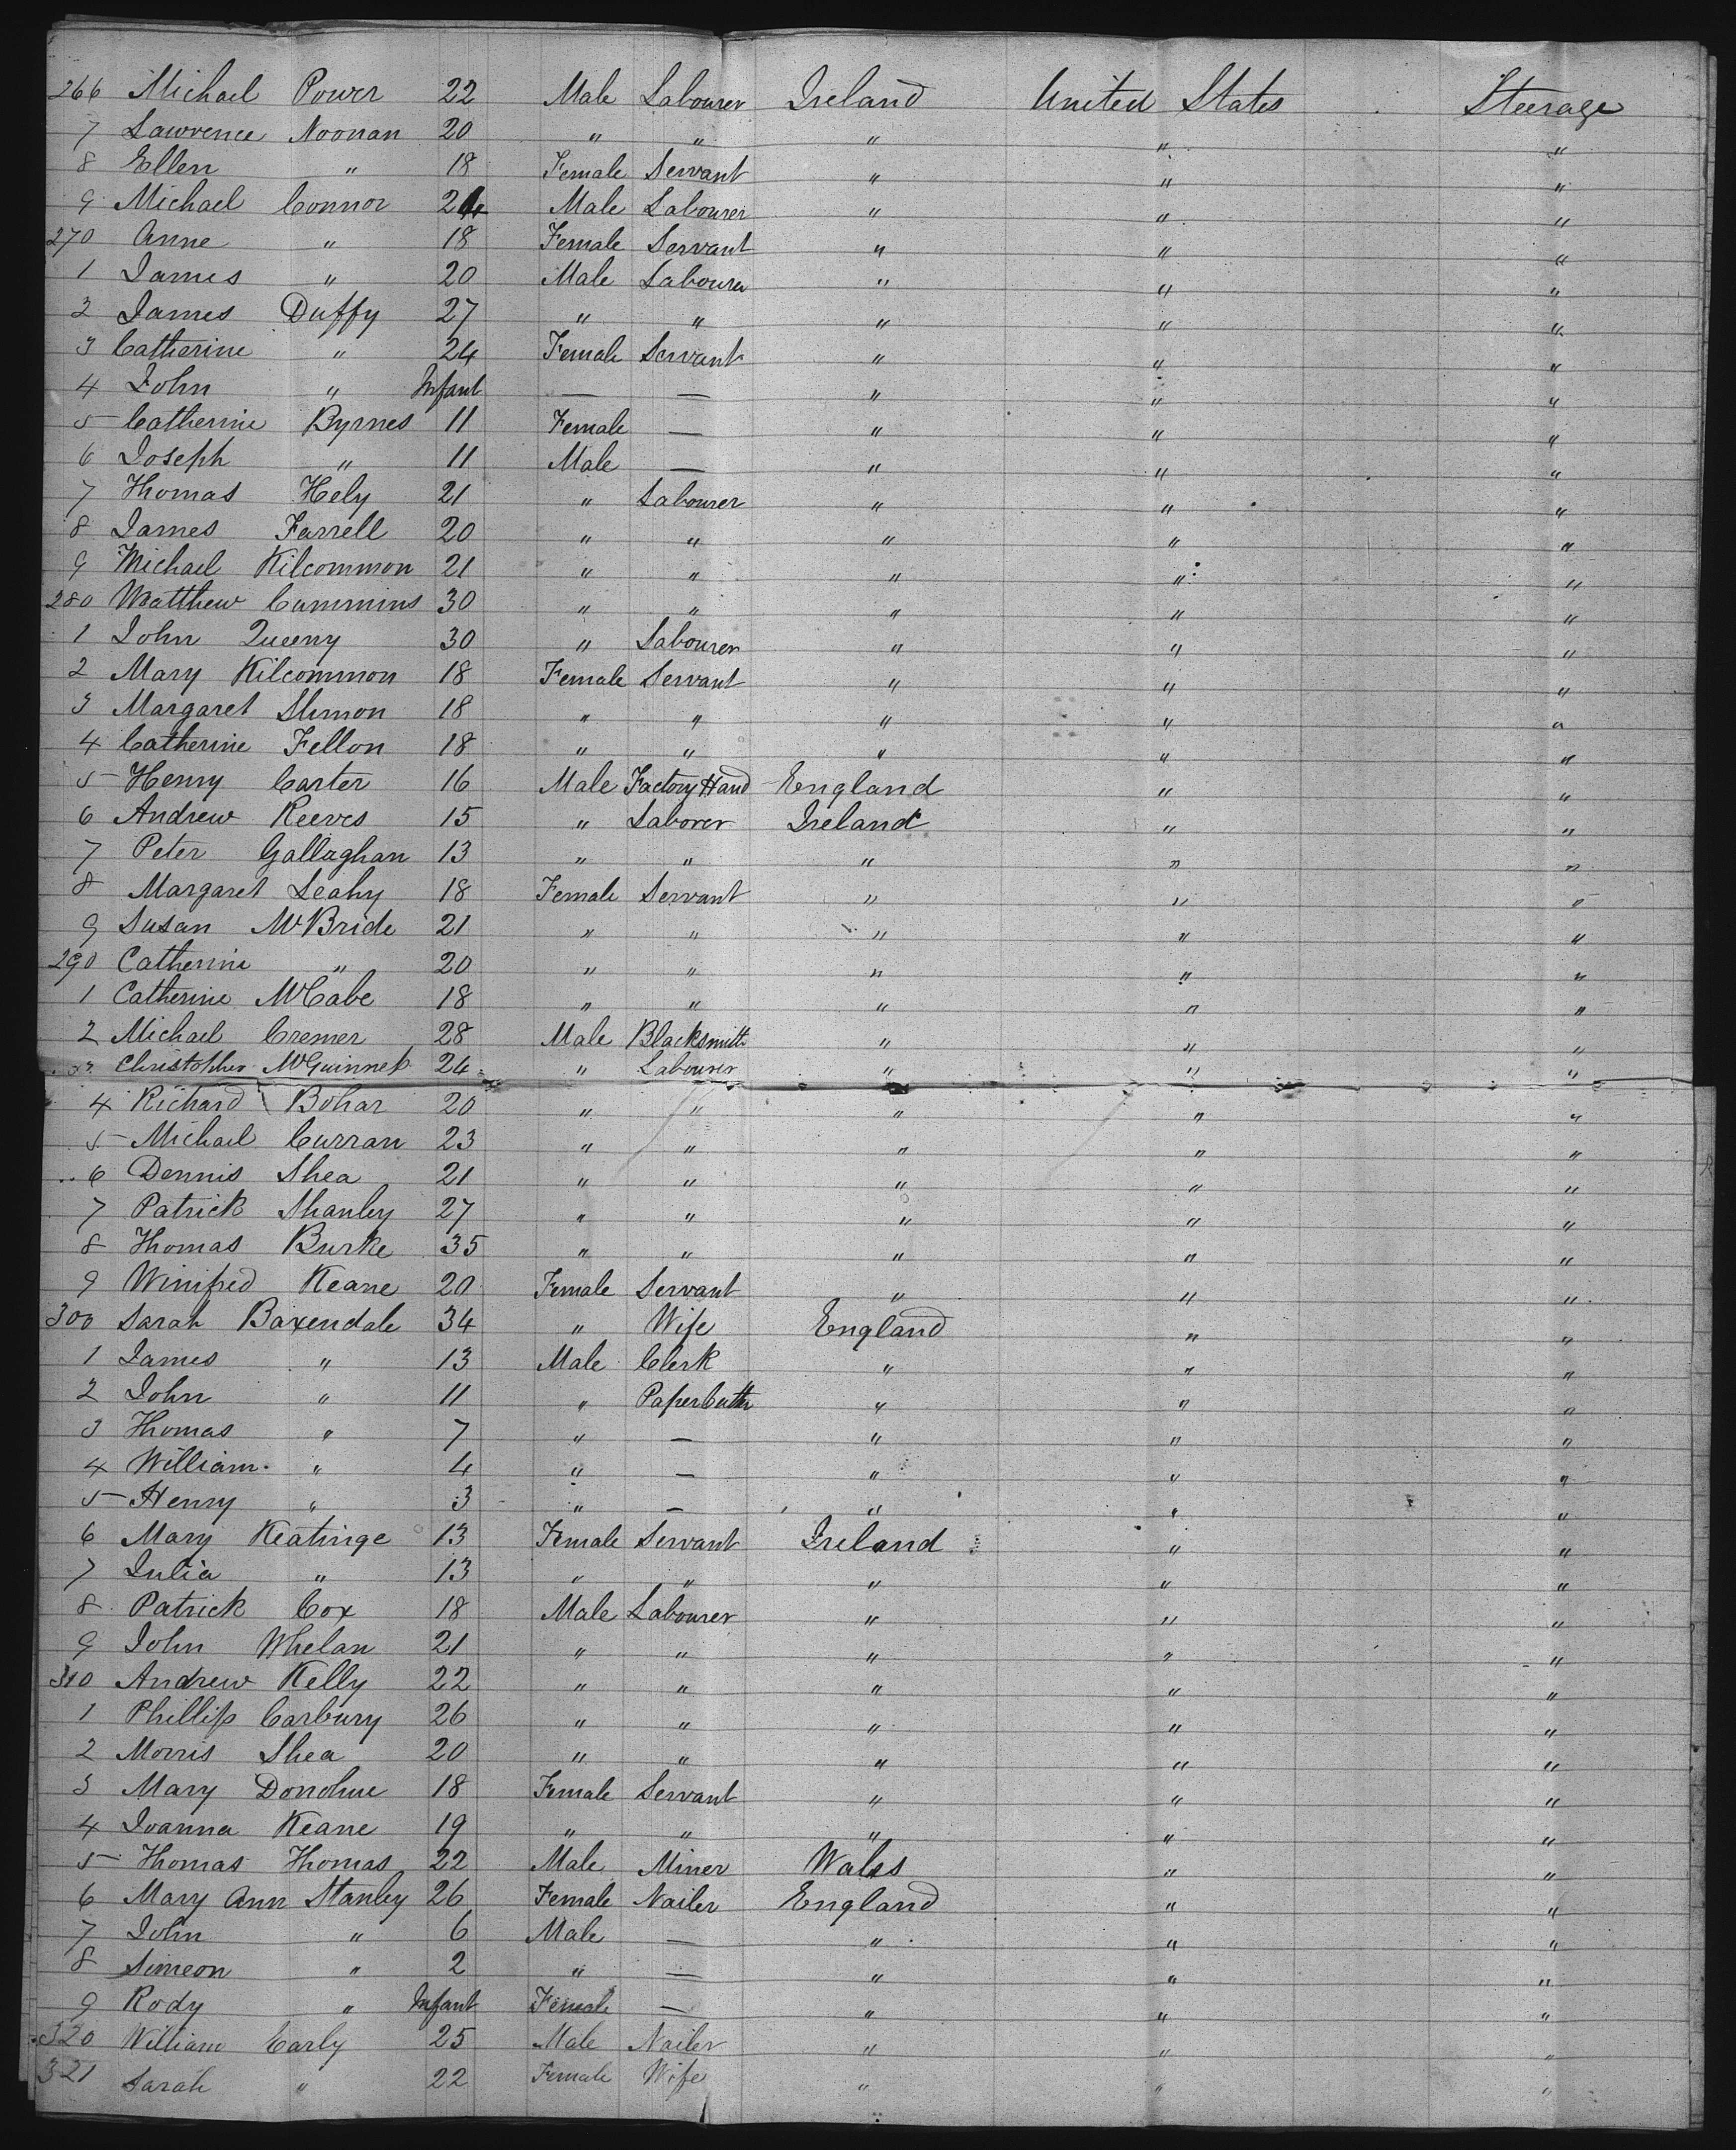 266 Michael Power 22 Male Labourer Ireland United States Steerage
7 Lawrence Noonan 20 " " " " "
8 Ellen " 18 Female Servant " " "
9 Michael Connor 24 Male Labourer " " "
270 Anne " 18 Female Servant " " "
1 James " 20 Male Labourer " " "
2 James Duffy 27 " " " " "
3 Catherine " 24 Female Servant " " "
4 John " Infant — — " " "
5 Catherine Byrnes 11 Female — " " "
6 Joseph " 11 Male — " " "
7 Thomas Hely 21 " Labourer " " "
8 James Farrell 20 " " " " "
9 Michael Kilcommon 21 " " " " "
280 Matthew Cummins 30 " " " " "
1 John Queeny 30 " Labourer " " "
2 Mary Kilcommon 18 Female Servant " " "
3 Margaret 18 " " " " "
4 Catherine Fellon 18 " " " " "
5 Henry Carter 16 Male Factory Hand England " "
6 Andrew Reeves 15 " Laborer Ireland " "
7 Peter Gallaghan 13 " " " " "
8 Margaret Leahy 18 Female Servant " " "
9 Susan McBride 21 " " " " "
290 Catherine " 20 " " " " "
1 Catherine McCabe 18 " " " " "
2 Michael Cremer 28 Male Blacksmith " " "
3 Christopher McGuinness 24 " Labourer " " "
4 Richard Bohar 20 " " " " "
5 Michael Curran 23 " " " " "
6 Dennis Shea 21 " " " " "
7 Patrick Shanley 27 " " " " "
8 Thomas Burke 35 " " " " "
9 Winifred Keane 20 Female Servant " " "
300 Sarah Baxendale 34 " Wife England " "
1 James " 13 Male Clerk " " "
2 John " 11 " Paper Cutter " " "
3 Thomas " 7 " — " " "
4 William " 4 " — " " "
5 Henry " 3 " — " " "
6 Mary Keatinge 13 Female Servant Ireland " "
7 Julia " 13 " " " " "
8 Patrick Cox 18 Male Labourer " " "
9 John Whelan 21 " " " " "
310 Andrew Kelly 22 " " " " "
1 Phillip Carbury 26 " " " " "
2 Morris Shea 20 " " " " "
3 Mary Donohue 18 Female Servant " " "
4 Joanna Keane 19 " " " " "
5 Thomas Thomas 22 Male Miner Wales " "
6 Mary Ann Stanley 26 Female Nailer England " "
7 John " 6 Male — " " "
8 Simeon " 2 " — " " "
9 Rody " Infant Female — " " "
320 William Early 25 Male Nailer " " "
321 Sarah " 22 Female Wife " " "